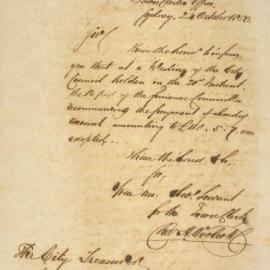 Town Clerk's Office
Sydney, 24 October 1850.
Sir,
I have the honor to inform
you that at a Meeting of the City
Council holden on the 21st Instant
the Report of the Finance Committee
recommending the payment of Sundry
accounts amounting to 5. 9 was
adopted
I have the honor &c
Sir
Your Servant
for the Town Clerk
The City Treasurer